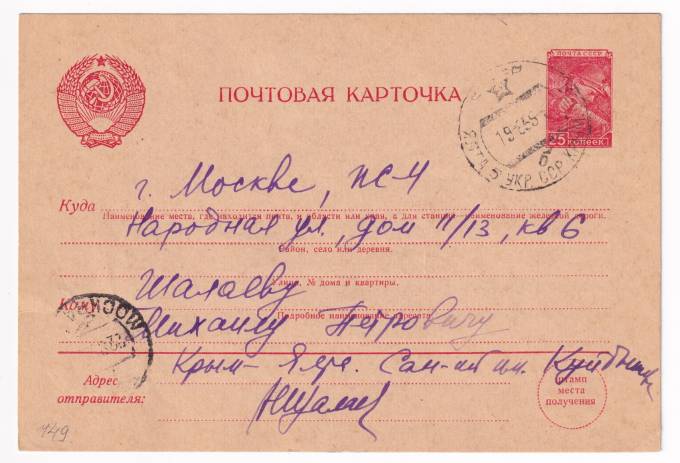 ПОЧТА СССР
ПОЧТОВАЯ КАРТОЧКА
25 КОПЕЕК
19-6
УКР. ССР
г. Москве, ПСЧ
Куда
Наименование места, где находится почта, и области или края, а для станций—наименование железной дороги.
Народная ул, дом 11/13, кв 6
Район, село или деревня.
Улица, № дома и квартиры.
Шалаеву
Кому
Подробное наименование адресата
Михаилу Петровичу
МОСКВА
Крым - Ялта. Сан-ий им. Куйбышева
Адрес отправителя:
НШалаев
Штамп
места
получения
149